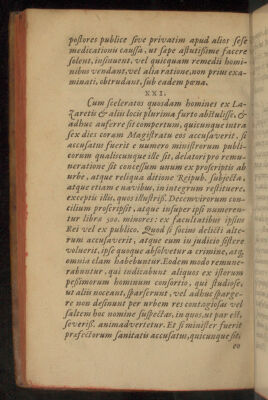 postores publice sive privatim apud alios sese
medicationis caussâ, ut sæpe astutissime facere
solent, insinuent, vel quicquam remedii homi-
nibus vendant, vel alia ratione, non prius exa-
minati, obtrudant, sub eadem pœna.
XXI.
Cum sceleratos quosdam homines ex La-
Zaretis & aliis locis plurima furto abstulisse, &
adhuc auferre sit compertum, quicunque intra
sex dies coram Magistratu eos accusaverit, si
accusatus fuerit e numero ministrorum publi-
corum qualiscunque ille sit, delatori pro remu-
neratione sit concessum unum ex proscriptis ab
urbe, atque reliqua ditione Reipub. subjectâ,
atque etiam e navibus, in integrum restituere,
exceptis illis, quos illustriss. Decemvirorum con-
cilium proscripsit, atque insuper ipsi numeren-
tur libræ 500. minores: ex facultatibus ipsius
Rei vel ex publico. Quod si socius delicti alte-
rum accusaverit, atque eum in judicio sistere
voluerit, ipse quoque absolvetur a crimine, atq,
omnia clam habebuntur. Eodem modo remune-
rabuntur, qui indicabunt aliquos ex istorum
pessimorum hominum consortio, qui studiose,
ut aliis noceant, sparserunt, vel adhuc sparge-
re non desinunt per urbem res contagiosas vel
saltem hoc nomine suspectas, in quos, ut par est,
severiss. animadvertetur. Et si minister fuerit
præfectorum sanitatis accusatus, quicunque sit:
eo